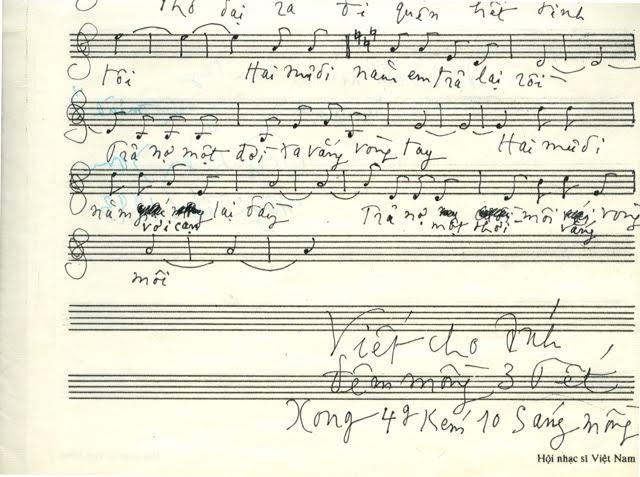 Thơ dại ra đi quên hết tình
tôi Hai mươi năm em trả lại rồi
Trả nợ một đời xa vắng vòng tay Hai mươi
năm vơi cạn lại đầy Trả nợ một thời môi vắng vòng
môi
Viết cho Ánh
đêm mồng 3 Tết,
Xong 4g kém 10 sáng mồng
Hội nhạc sĩ Việt Nam